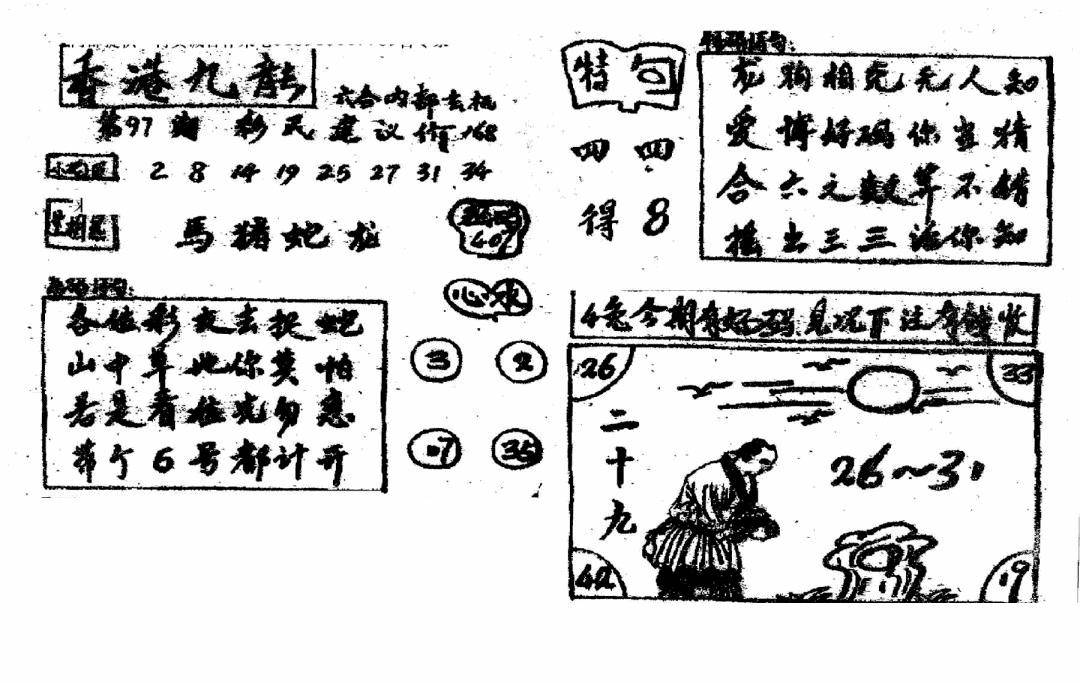 香港九龍
六合内部玄机
第97期 彩民建议价168
2 8 14 19 25 27 31 34
生肖
馬猪蛇龙
40%
心水
3 2
17 35
各位彩友去捉蛇
山中草地你莫怕
若是看位克勿惹
第个6号都计开
特句
四四
得8
龙狗相克无人知
爱博好码你去猜
合六之数单不错
摇出三三话你知
今期有好码见况下注有钱收
26 33
二十九
26~31
42 19